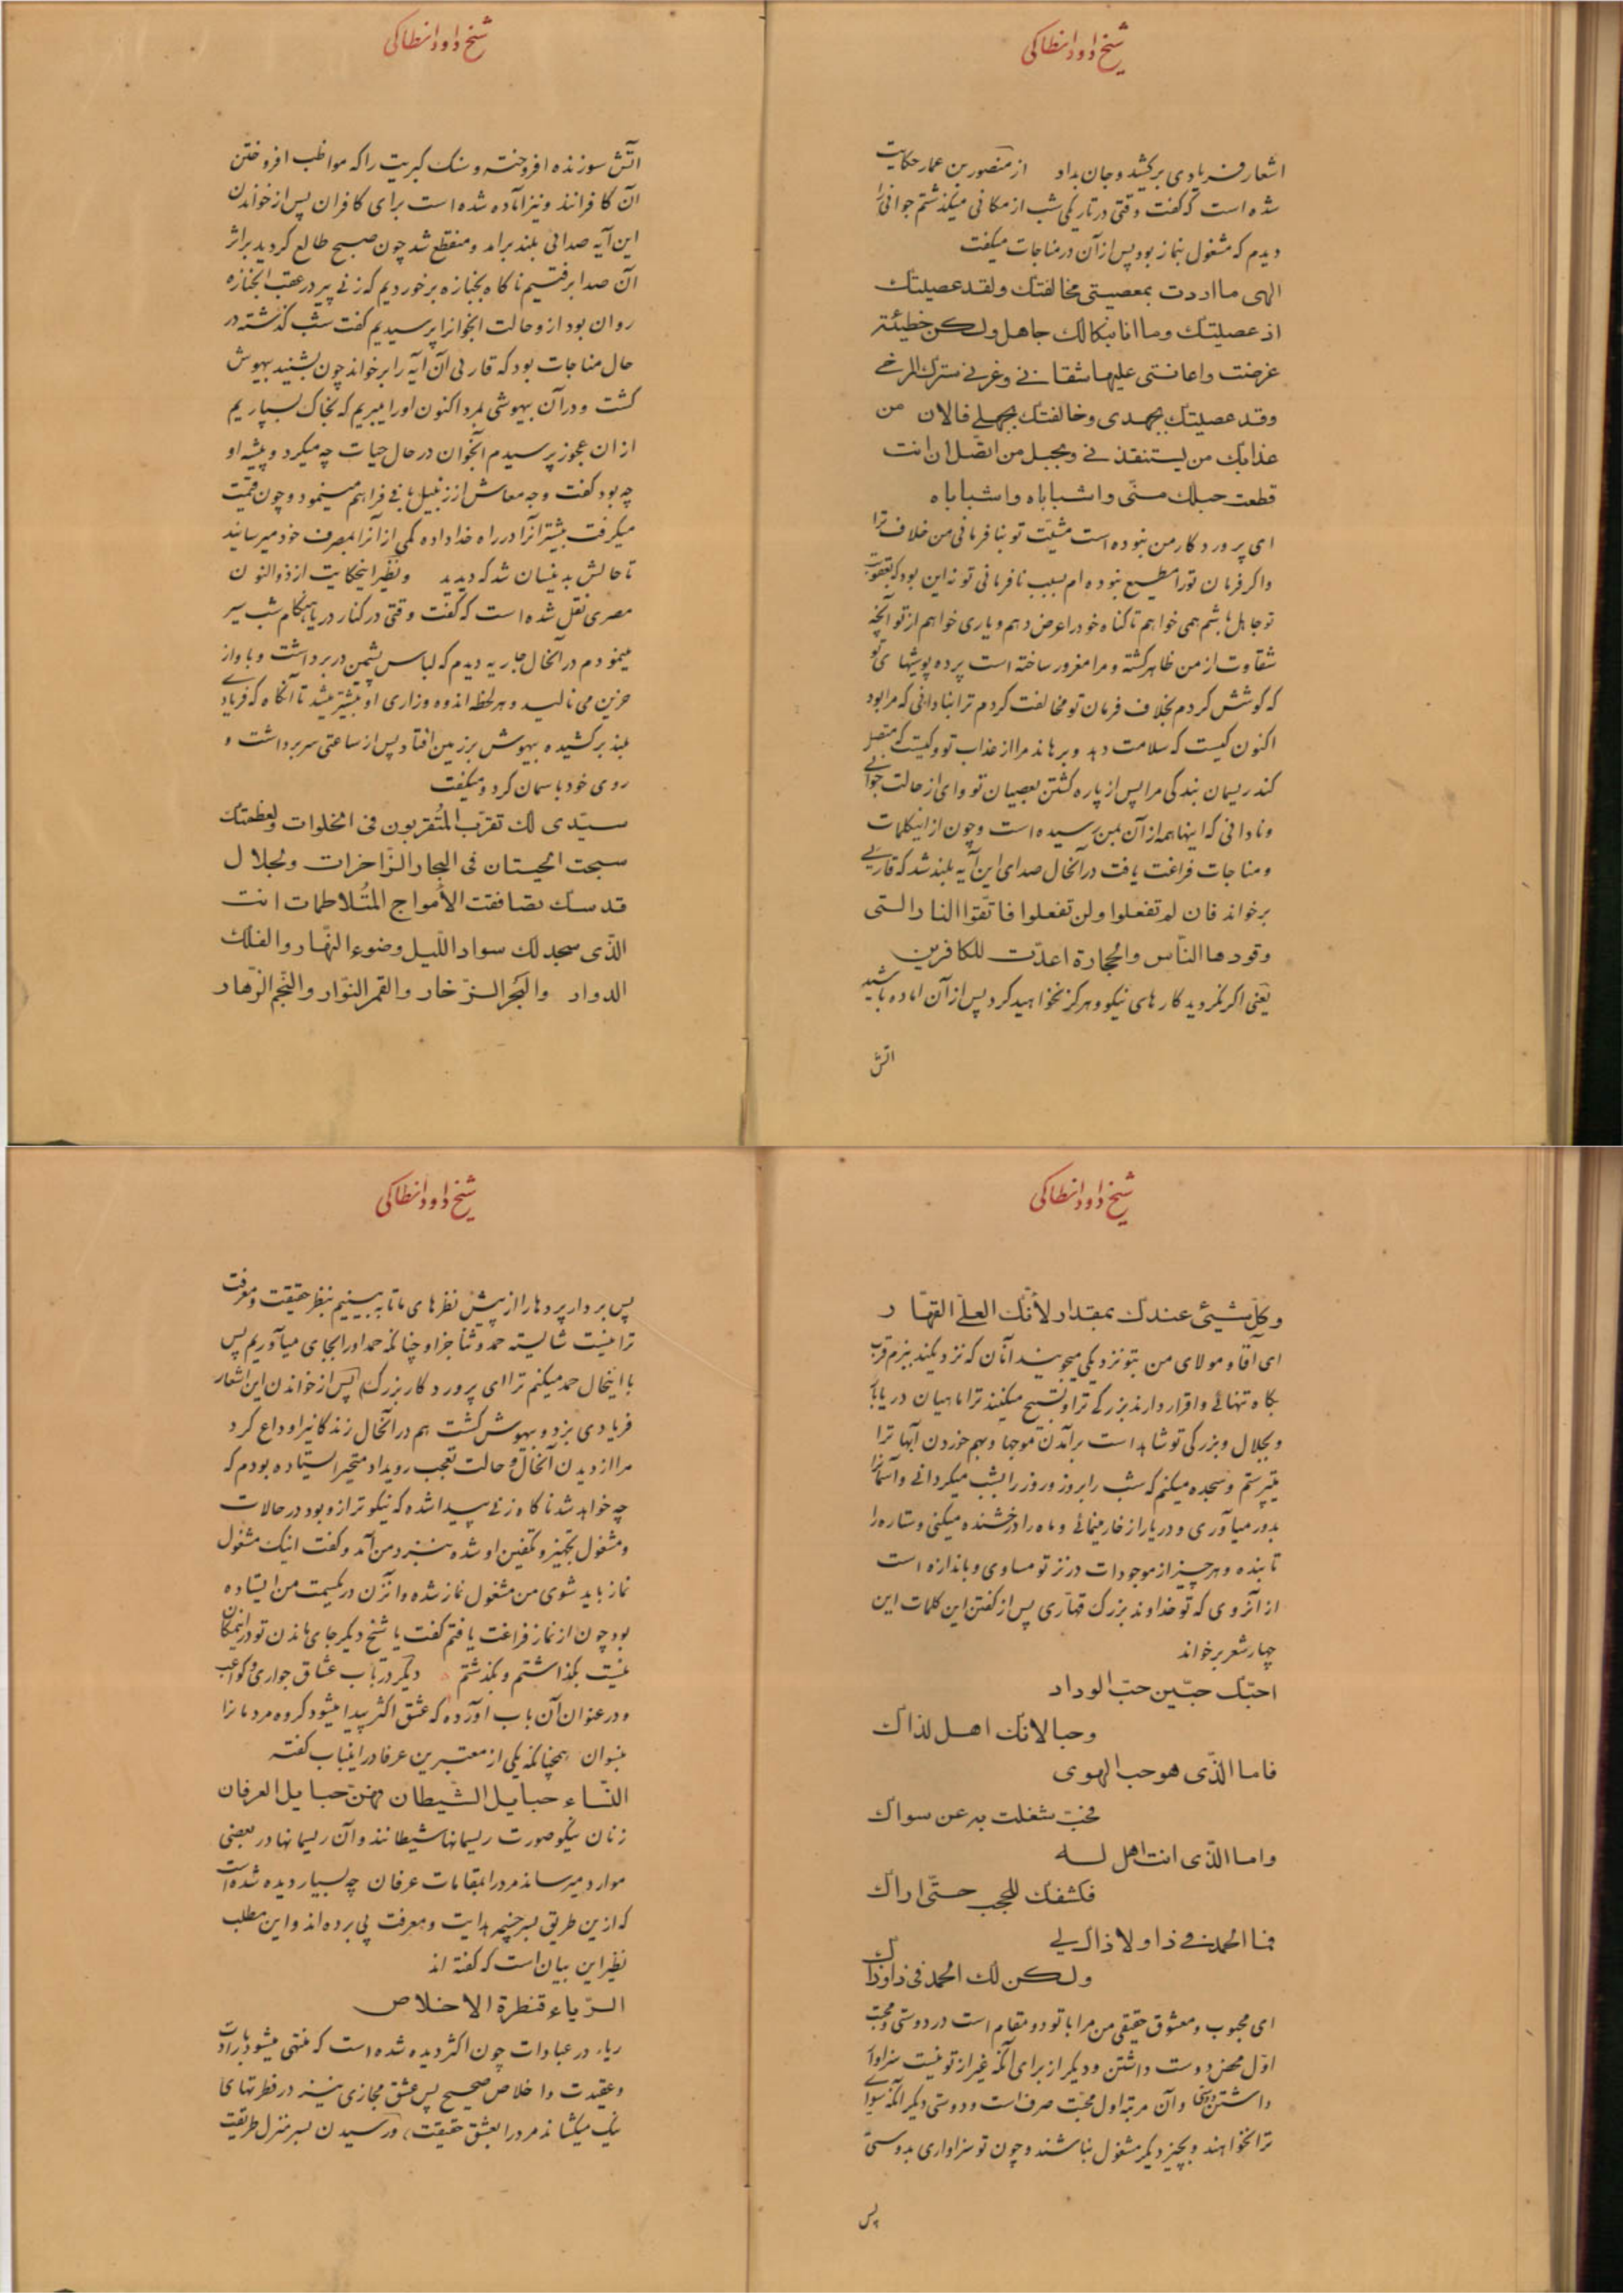 شیخ داود انطاکی
اشعار فریادی برکشید و جان بداد از منصور بن عمار حکایت
شده است که گفت وقتی در تاریکی شب از مکانی میگذشتم جوانی را
دیدم که مشغول نماز بود پس از آن در مناجات میگفت
الهی ما اردت بمعصیتی مخالفتك ولقد عصیتك
اذ عصیتك وما انا بنکالك جاهل ولکن خطیئة
عرضت واعانتنی علیها شقائی وغرنی سترك المرخی
وقد عصیتك بجهدی وخالفتك بجهلی فالان من
عذابك من یستنقذنی وبحبل من اتصل ان انت
قطعت حبلك منی واشباباه واشباباه
ای پروردگار من نبوده است مشیت تو بنافرمانی من خلاف ترا
واگر فرمان تورا مطیع نبوده ام بسبب نافرمانی تو نه این بود که بعقوبت
تو جاهل باشم همی خواهم تا گناه خود را عرض دهم و یاری خواهم از تو آنچه
شقاوت از من ظاهر گشته و مرا مغرور ساخته است پرده پوشیهای تو
که کوشش کردم بخلاف فرمان تو مخالفت کردم ترا بنادانی که مرا بود
اکنون کیست که سلامت دهد و برهاند مرا از عذاب تو و کیست که متصل
کند ریسمان بندگی مرا پس از پاره گشتن بعصیان تو وای از حالت جوانی
و نادانی که اینها همه از آن بمن رسیده است و چون از اینکلمات
و مناجات فراغت یافت در آنحال صدای این آیه بلند شد که قاریی
برخواند فان لم تفعلوا ولن تفعلوا فاتقوا النار التی
وقودها الناس والحجارة اعدت للکافرین
یعنی اگر نکردید کارهای نیکو و هرگز نخواهید کرد پس از آن اماده باشید
اتش
شیخ داود انطاکی
اتش سوزنده افروخته و سنک کبریت را که مواظب افروختن
آن کافرانند و نیز آماده شده است برای کافران پس از خواندن
این آیه صدائی بلند برامد و منقطع شد چون صبح طالع گردید براثر
آن صدا برفتیم ناگاه بجنازه برخوردیم که زنی پیر در عقب الجنازه
روان بود از و حالت انجوانرا پرسیدیم گفت شب گذشته در
حال مناجات بود که قارئی آن آیه را برخواند چون بشنید بیهوش
گشت و در آن بیهوشی بمرد اکنون اورا میبریم که بخاک بسپاریم
از ان عجوز پرسیدم انجوان در حال حیات چه میکرد و پیشه او
چه بود گفت وجه معاش از زنبیل بافی فراهم مینمود و چون قیمت
میگرفت بیشتر آنرا در راه خدا داده کمی از آنرا بمصرف خود میرسانید
تا حالش بدینسان شد که دیدید و نظیر اینحکایت از ذوالنون
مصری نقل شده است که گفت وقتی در کنار دریا هنگام شب سیر
مینمودم در آنحال جاریه دیدم که لباس پشمین در برداشت و باواز
حزین می نالید و هر لحظه اندوه و زاری او بیشتر میشد تا آنگاه که فریادی
بلند برکشیده بیهوش بر زمین افتاد پس از ساعتی سر برداشت و
روی خود باسمان کرد و میگفت
سیدی لك تقرب المتقربون فی الخلوات ولعظمتك
سبحت الحیتان فی البحار الزاخرات وبجلال
قدسك تصافقت الأمواج المتلاطمات انت
الذی سجد لك سواد اللیل وضوء النهار والفلك
الدوار والبحر الزخار والقمر النوار والنجم الزهار
شیخ داود انطاکی
وکل شیئی عندك بمقدار لأنك العلی القهار
ای آقا و مولای من بتو نزدیکی میجویند آنان که نزدیکند ببزم قرب
بگاه تنهائی و اقرار دارند بزرگی ترا و تسبیح میکنند ترا ماهیان در دریاها
و بجلال و بزرگی تو شاهد است برآمدن موجها و بهم خوردن آبها ترا
میپرستم و سجده میکنم که شب را بروز و روز را بشب میگردانی و آسمانرا
بدور میآوری و دریا را زخار مینمائی و ماه را درخشنده میکنی و ستاره را
تابنده و هر چیز از موجودات در نزد تو مساوی و باندازه است
از آنروی که تو خداوند بزرگ قهاری پس از گفتن این کلمات این
چهار شعر برخواند
احبك حبین حب الوداد
وحبا لانك اهل لذاك
فاما الذی هو حب الهوی
فحب شغلت به عن سواك
واما الذی انت اهل له
فکشفك للحجب حتی اراك
فما الحمد فی ذا ولا ذاك لی
ولکن لك الحمد فی ذا وذاك
ای محبوب و معشوق حقیقی من مرا با تو دو مقام است در دوستی و محبت
اول محض دوست داشتن و دیگر از برای آنکه غیر از تو نیست سزاوار
داشتن دوستی و آن مرتبه اول محبت صرف است و دوستی دیگر آنکه سوای
ترا نخواهند و بچیز دیگر مشغول نباشند و چون تو سزاواری بدوستی
پس
شیخ داود انطاکی
پس بردار پردها را از پیش نظرهای ما تا به بینیم بنظر حقیقت و معرفت
ترا نیست شایسته حمد و ثنا جز او چنانکه حمد اورا بجای میآوریم پس
با اینحال حمد میکنم ترا ای پروردگار بزرگ پس از خواندن این اشعار
فریادی بزد و بیهوش گشت هم در آنحال زندگانیرا وداع کرد
مرا از دیدن آنحال و حالت تعجب رویداد متحیر ایستاده بودم که
چه خواهد شد ناگاه زنی پیدا شده که نیکوتر ازو بود در حالات
و مشغول تجهیز و تکفین او شده بنزد من آمد و گفت اینک مشغول
نماز باید شوی من مشغول نماز شده و آنزن در یکسمت من ایستاده
بود چون از نماز فراغت یافتم گفت یا شیخ دیگر جای ماندن تو در اینمکان
نیست بگذاشتم و بگذشتم دیگر در باب عشاق جواری و کواعب
و در عنوان آن باب آورده که عشق اکثر پیدا میشود گروه مردمانرا
بنسوان همچنانکه یکی از معتبرین عرفا در اینباب گفته
النساء حبایل الشیطان وهن حبایل العرفان
زنان نیکو صورت ریسمانها شیطانند و آن ریسمانها در بعضی
موارد میرساند مرد را بمقامات عرفان چه بسیار دیده شده است
که ازین طریق بسرچشمه هدایت و معرفت پی برده اند و این مطلب
نظیر این بیان است که گفته اند
الریاء قنطرة الاخلاص
ریاء در عبادات چون اکثر دیده شده است که منتهی میشود بارادت
و عقیدت و اخلاص صحیح پس عشق مجازی نیز در فطرتهای
نیک میکشاند مرد را بعشق حقیقت و رسیدن بسرمنزل طریقت